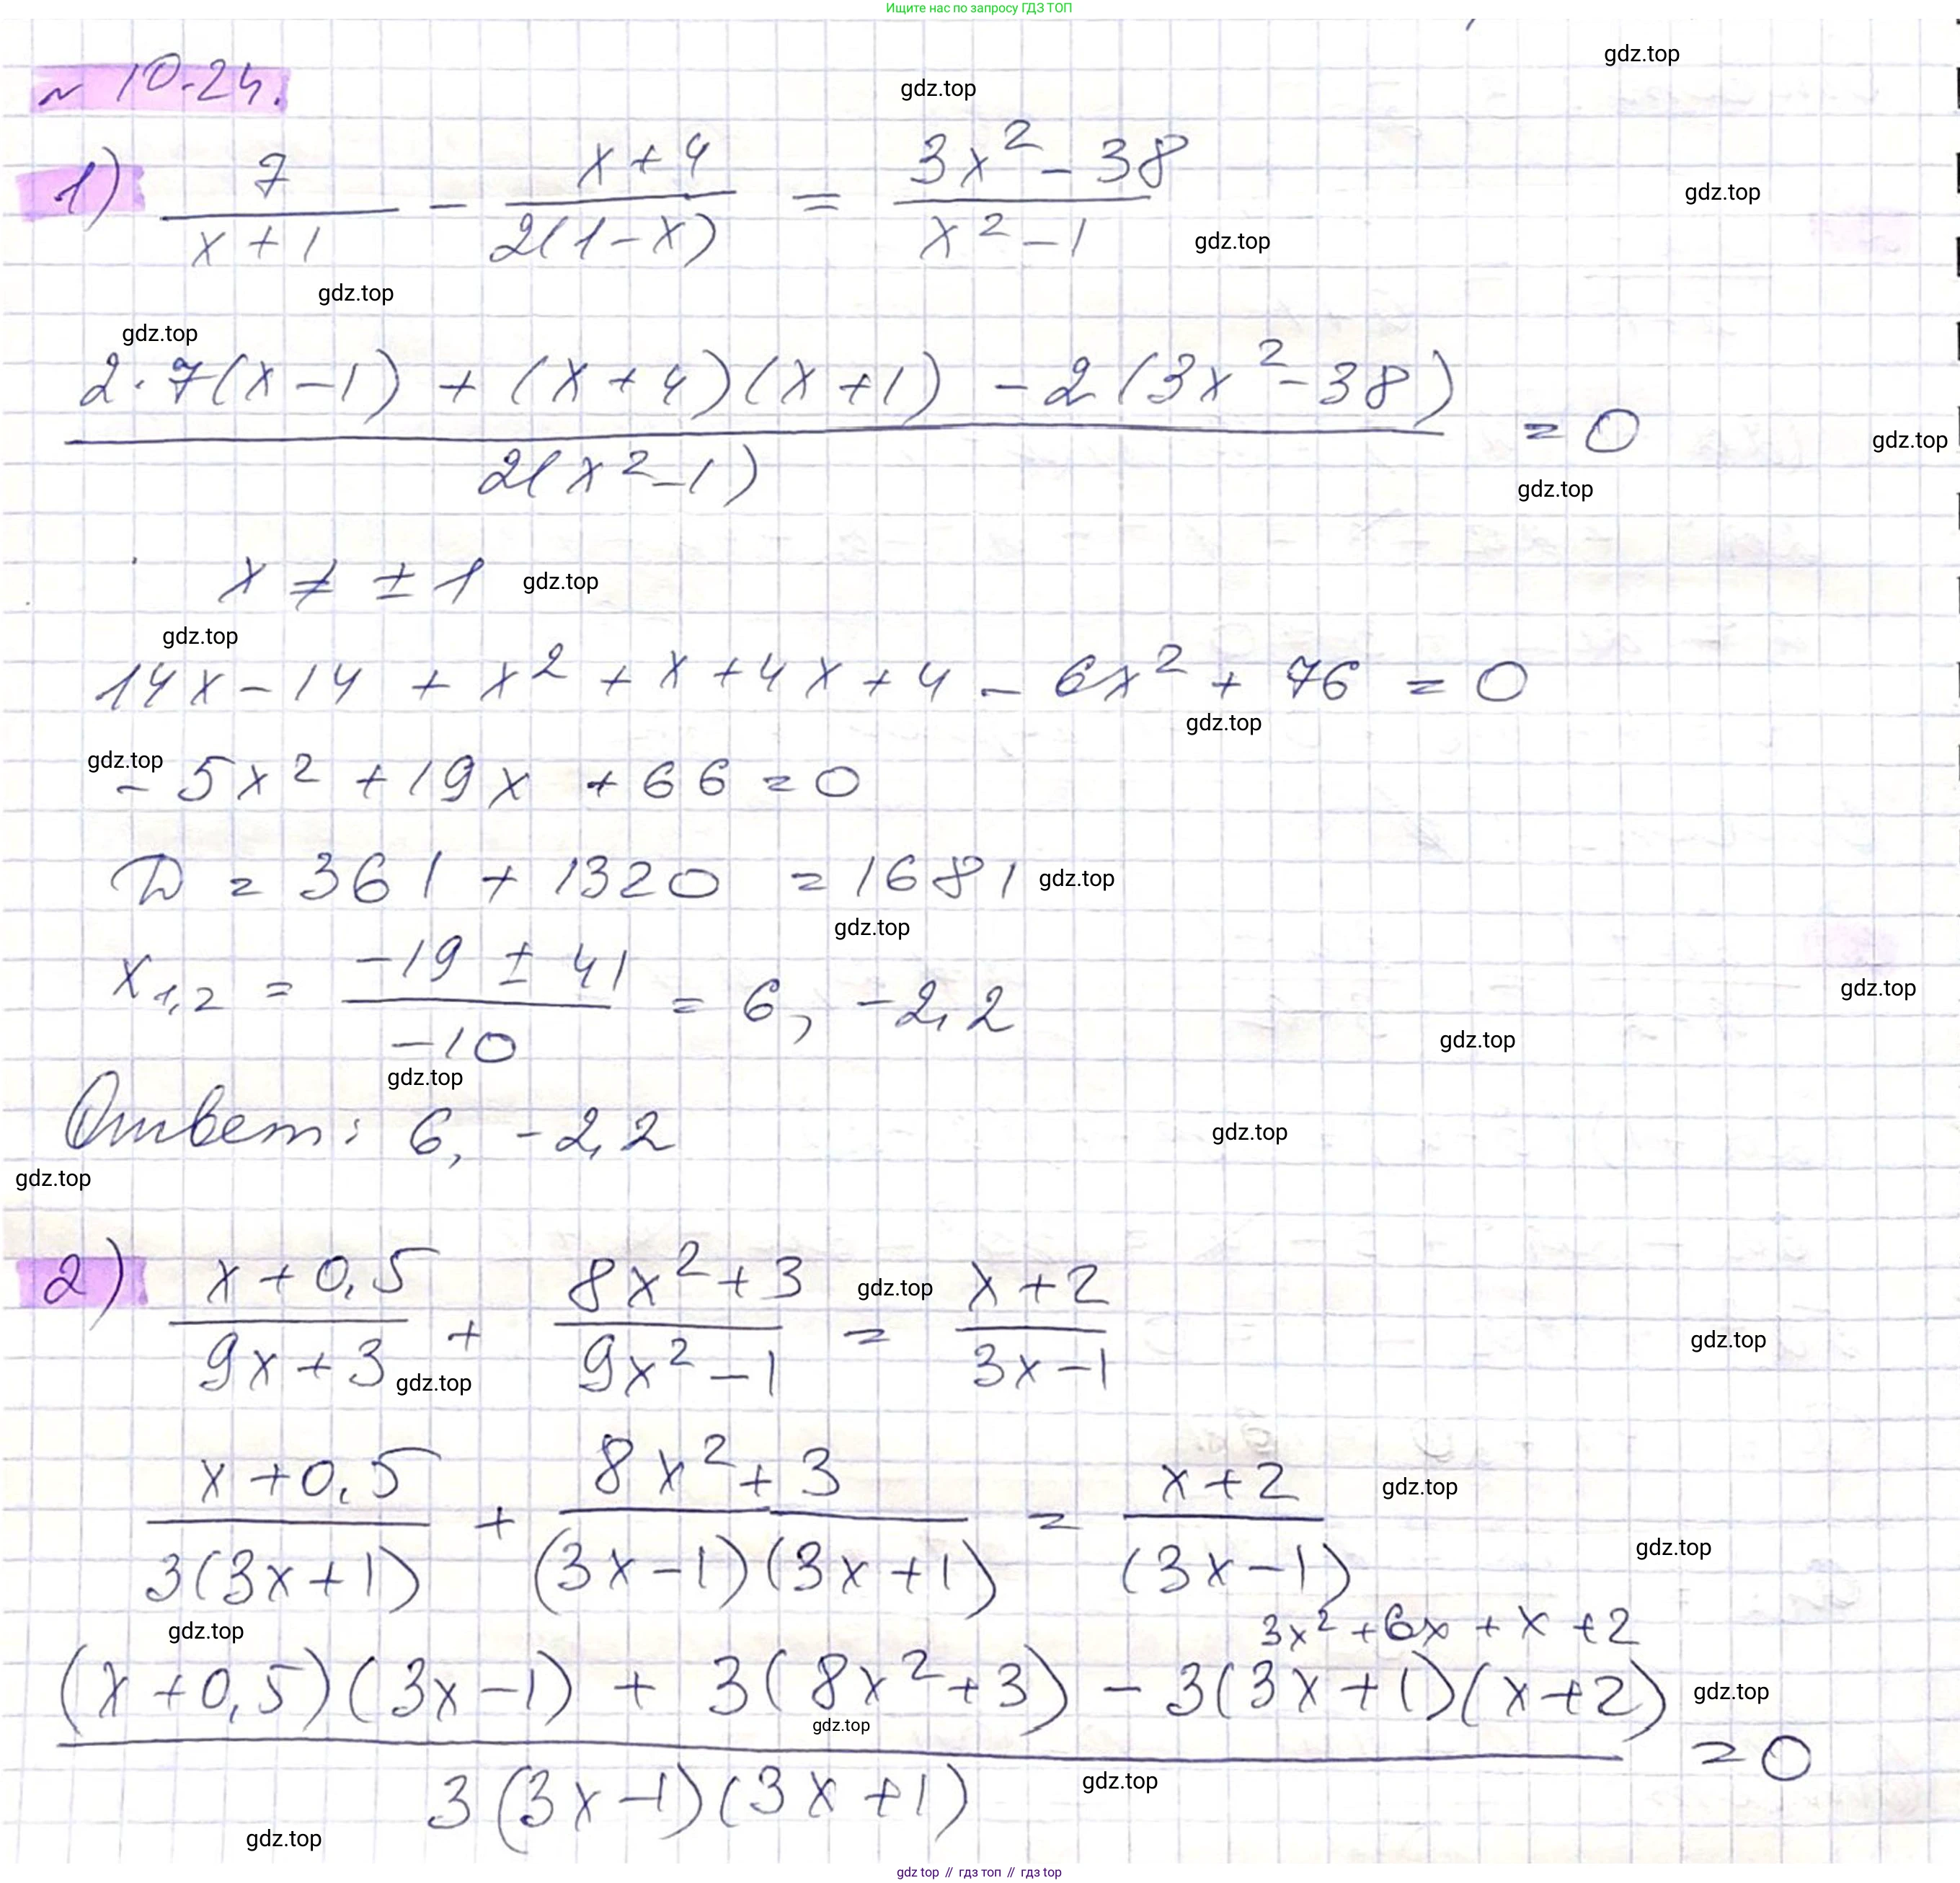 Ищите нас по запросу ГДЗ ТОП
gdz.top
№ 10.24.
gdz.top
1) 7/(x+1) - (x+4)/(2(1-x)) = (3x² - 38)/(x² - 1)
gdz.top
gdz.top
gdz.top
gdz.top
(2·7(x-1) + (x+4)(x+1) - 2(3x² - 38))/(2(x² - 1)) = 0
gdz.top
gdz.top
x ≠ ± 1
gdz.top
gdz.top
14x - 14 + x² + x + 4x + 4 - 6x² + 76 = 0
gdz.top
gdz.top
- 5x² + 19x + 66 = 0
D = 361 + 1320 = 1681
gdz.top
gdz.top
x₁,₂ = (-19 ± 41)/(-10) = 6, -2,2
gdz.top
gdz.top
gdz.top
Ответ: 6, -2,2
gdz.top
gdz.top
2) (x+0,5)/(9x+3) + (8x²+3)/(9x²-1) = (x+2)/(3x-1)
gdz.top
gdz.top
gdz.top
(x+0,5)/(3(3x+1)) + (8x²+3)/((3x-1)(3x+1)) = (x+2)/(3x-1)
gdz.top
gdz.top
gdz.top
3x² + 6x + x + 2
((x+0,5)(3x-1) + 3(8x²+3) - 3(3x+1)(x+2))/(3(3x-1)(3x+1)) = 0
gdz.top
gdz.top
gdz.top
gdz.top
gdz top // гдз топ // гдз top